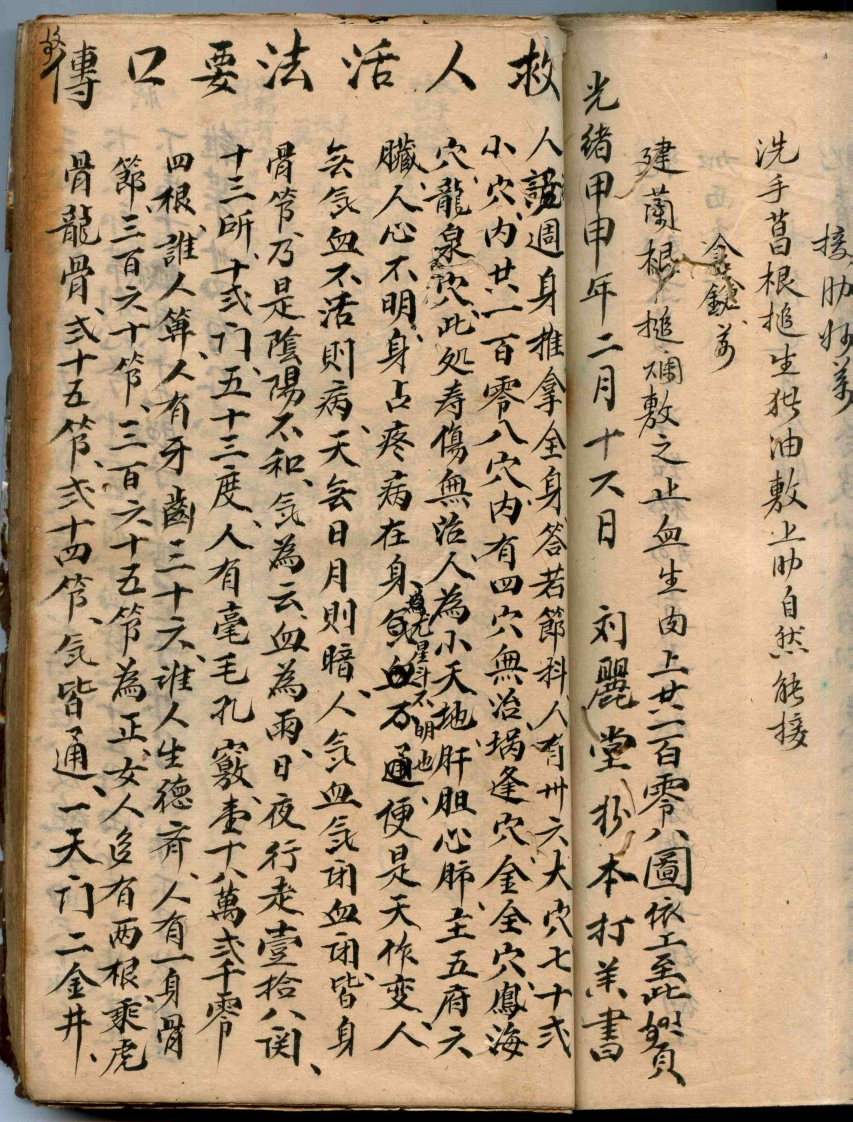 接肋好药
洗手菖根搥生猪油敷上肋自然能接
金鎗药
建蘭根搥爛敷之止血生肉上共一百零八圖依工至此
光緒甲申年二月十六日 刘麗堂抄本打羊書
救人活法要口傳
人週身推拿全身答若節科人有卅六大穴七十弍
小穴内共一百零八穴内有四穴無治埚逢穴金全穴鳳海
穴龍泉穴此処寿傷無治人為小天地肝胆心肺主五府六
臟人心不明身占疼病在身氣血不通便是天作变人
為尤星斗不明也
无氣血不活則病天无日月則暗人氣血氣闭血闭皆身
骨節乃是陰陽不和氣為云血為雨日夜行走壹拾八関
十三所十弍门五十三度人有毫毛孔竅壹十八萬弍千零
四根誰人算人有牙齒三十六誰人生德齐人有一身骨
節三百六十節三百六十五節為正女人多有两根乘虎
骨龍骨弍十五節弍十四節氣皆通一天门二金井